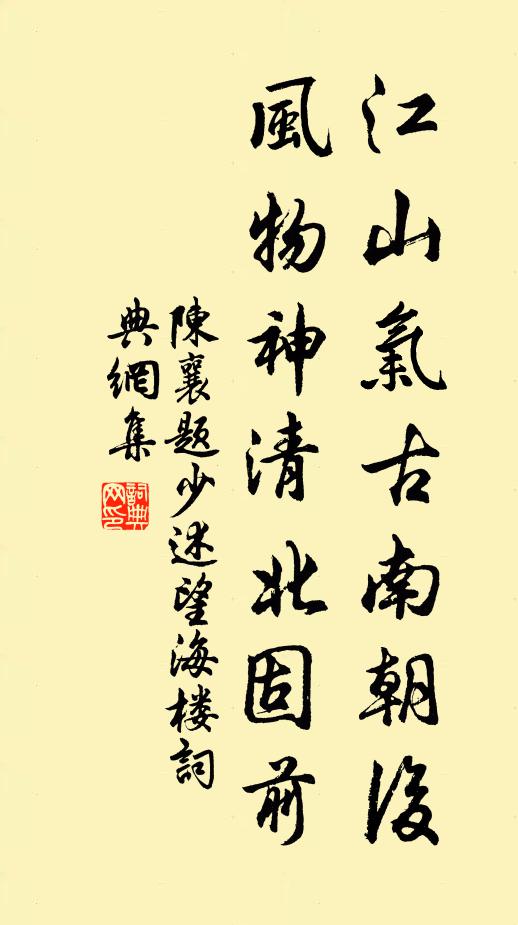 江山氣古南朝後
風物神清北固前
陳襄題少述望海楼詞
典網集
詞典
网印